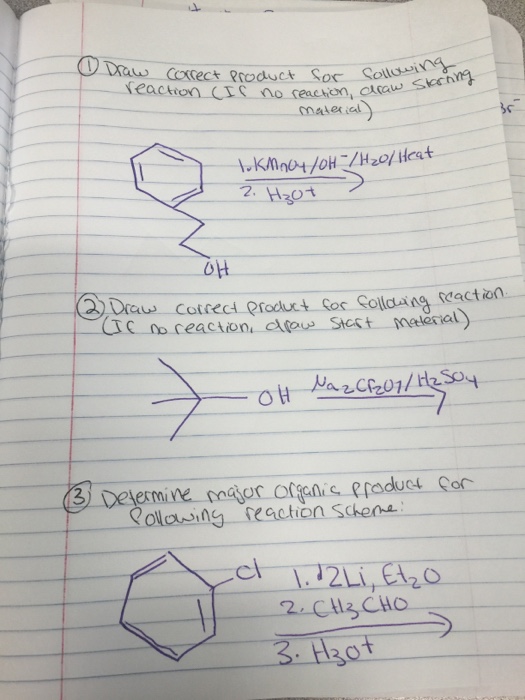 ① Draw correct product for following
reaction (If no reaction, draw starting
material)
1. KMnO4/OH-/H2O/Heat
2. H3O+
OH
② Draw correct product for following reaction.
(If no reaction, draw start material)
OH Na2Cr2O7/H2SO4
③ Determine major organic product for
following reaction scheme:
Cl 1. 2Li, Et2O
2. CH3CHO
3. H3O+